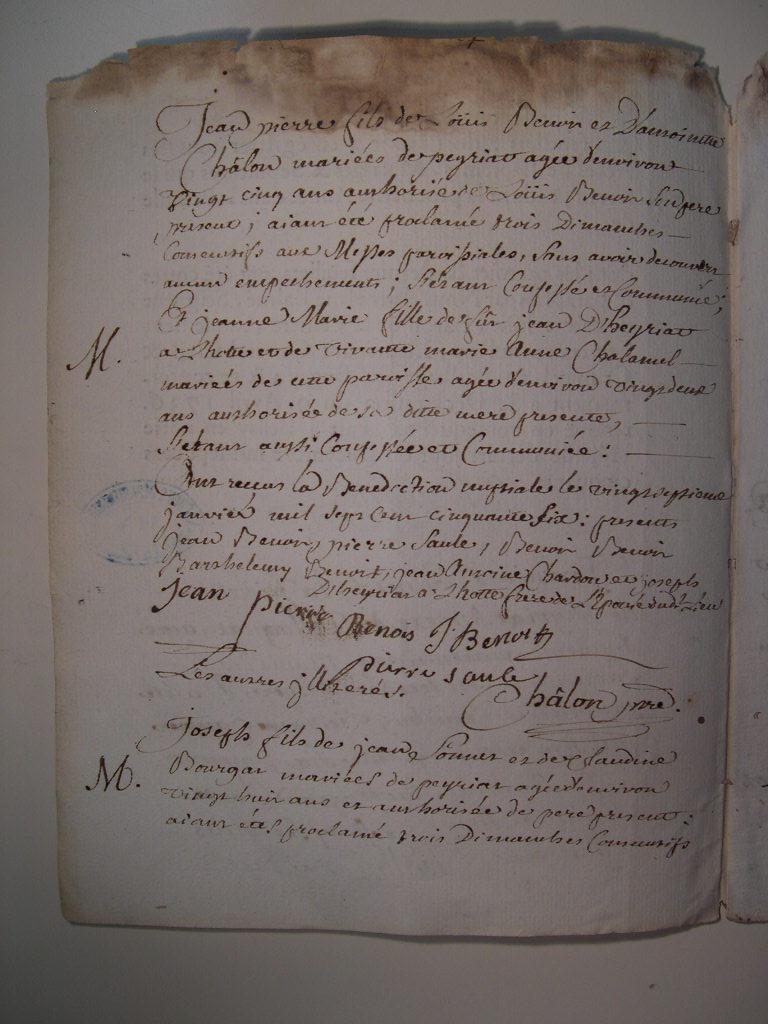 Jean pierre fils de Loüis Benoit et D'antoinette
Châlon mariées de peyriat agée d'environ
vingt cinq ans authorisé de Loüis Benoit son pere
present; aiant été proclamé trois Dimanches
Consecutifs aux Messes paroissiales, sans avoir decouvert
aucun empechements; s'étant Confessé et Communié;
Et jeanne Marie fille de fût jean D'heyriat
a Lhotte et de vivante marie Anne Chalamel
mariées de cette paroisse agée d'environ vingt deux
ans authorisée de sa ditte mere presente,
s'étant aussi Confessée et Communiée:
M.
Ont reçus la Benediction nuptiale le vingt septieme
janvier mil sept cent cinquante six: presents
jean Benoit, pierre saule, Benoit Benoit
Barthelemy Benoit, jean Antoine Chardon et joseph
Dheyriat a Lhotte frere de L'Epouse dud. Lieu
jean pierre Benois J Benoit
pierre saule
Les autres illiterés. Châlon ptre.
Joseph fils de jean Sonnet et de Claudine
M.
Bourgat mariées de peyriat agée d'environ
vingt huit ans et authorisée de pere present:
aiant étés proclamé trois Dimanches Consecutifs